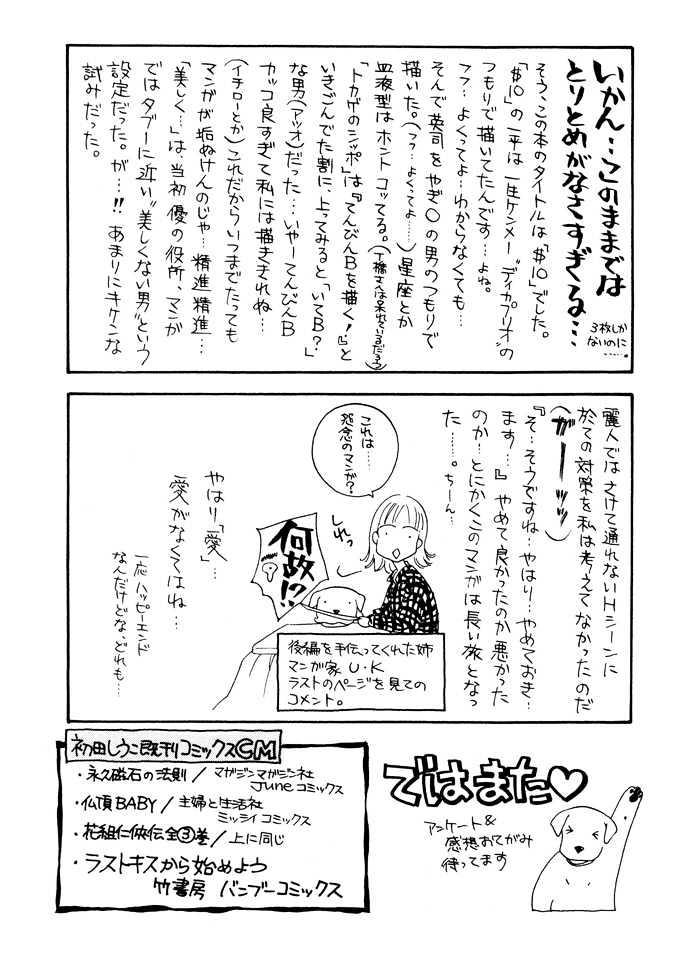 いかん…このままでは
とりとめがなさすぎる…
3枚しか
ないのに
……。
そう、この本のタイトルは「$10」でした。
「$10」の一平は一生ケンメー“ディカプリオ”の
つもりで描いてたんです…よね。
フフ…よくってよ…わからなくても…
そんで英司をやぎ〇の男のつもりで
描いた。(フフ…よくってよ……)星座とか
血液型はホントコッてる。(T橋さんは呆れているだろう)
「トカゲのシッポ」は『てんびんBを描く!』と
いきごんでた割に、上ってみると「いてB?」
な男(アツオ)だった…いやーてんびんB
カッコ良すぎて私には描ききれね…
(イチローとか)これだからいつまでたっても
マンガが垢ぬけんのじゃ…精進精進…
「美しく…」は、当初優の役所、マンガ
ではタブーに近い“美しくない男”という
設定だった。が…!!あまりにキケンな
試みだった。
麗人ではさけて通れないHシーンに
於ての対策を私は考えてなかったのだ
(がーーッッ)
『そ…そうですね…やはり…やめておき…
ます…』やめて良かったのか悪かった
のか…とにかくこのマンガは長い旅となっ
た……。ちーん…
これは……
怨念のマンガ?
しれっ
何故!?
後編を手伝ってくれた姉
マンガ家 U・K
ラストのページを見ての
コメント。
やはり「愛」…
愛がなくてはね…
一応ハッピーエンド
なんだけどな、どれも…
初田しうこ既刊コミックスCM
・永久磁石の法則/マガジンマガジン社
Juneコミックス
・仏頂BABY/主婦と生活社
ミッシイコミックス
・花組仁侠伝全③巻/上に同じ
・ラストキスから始めよう
竹書房 バンブーコミックス
ではまた♡
アンケート&
感想おてがみ
待ってます